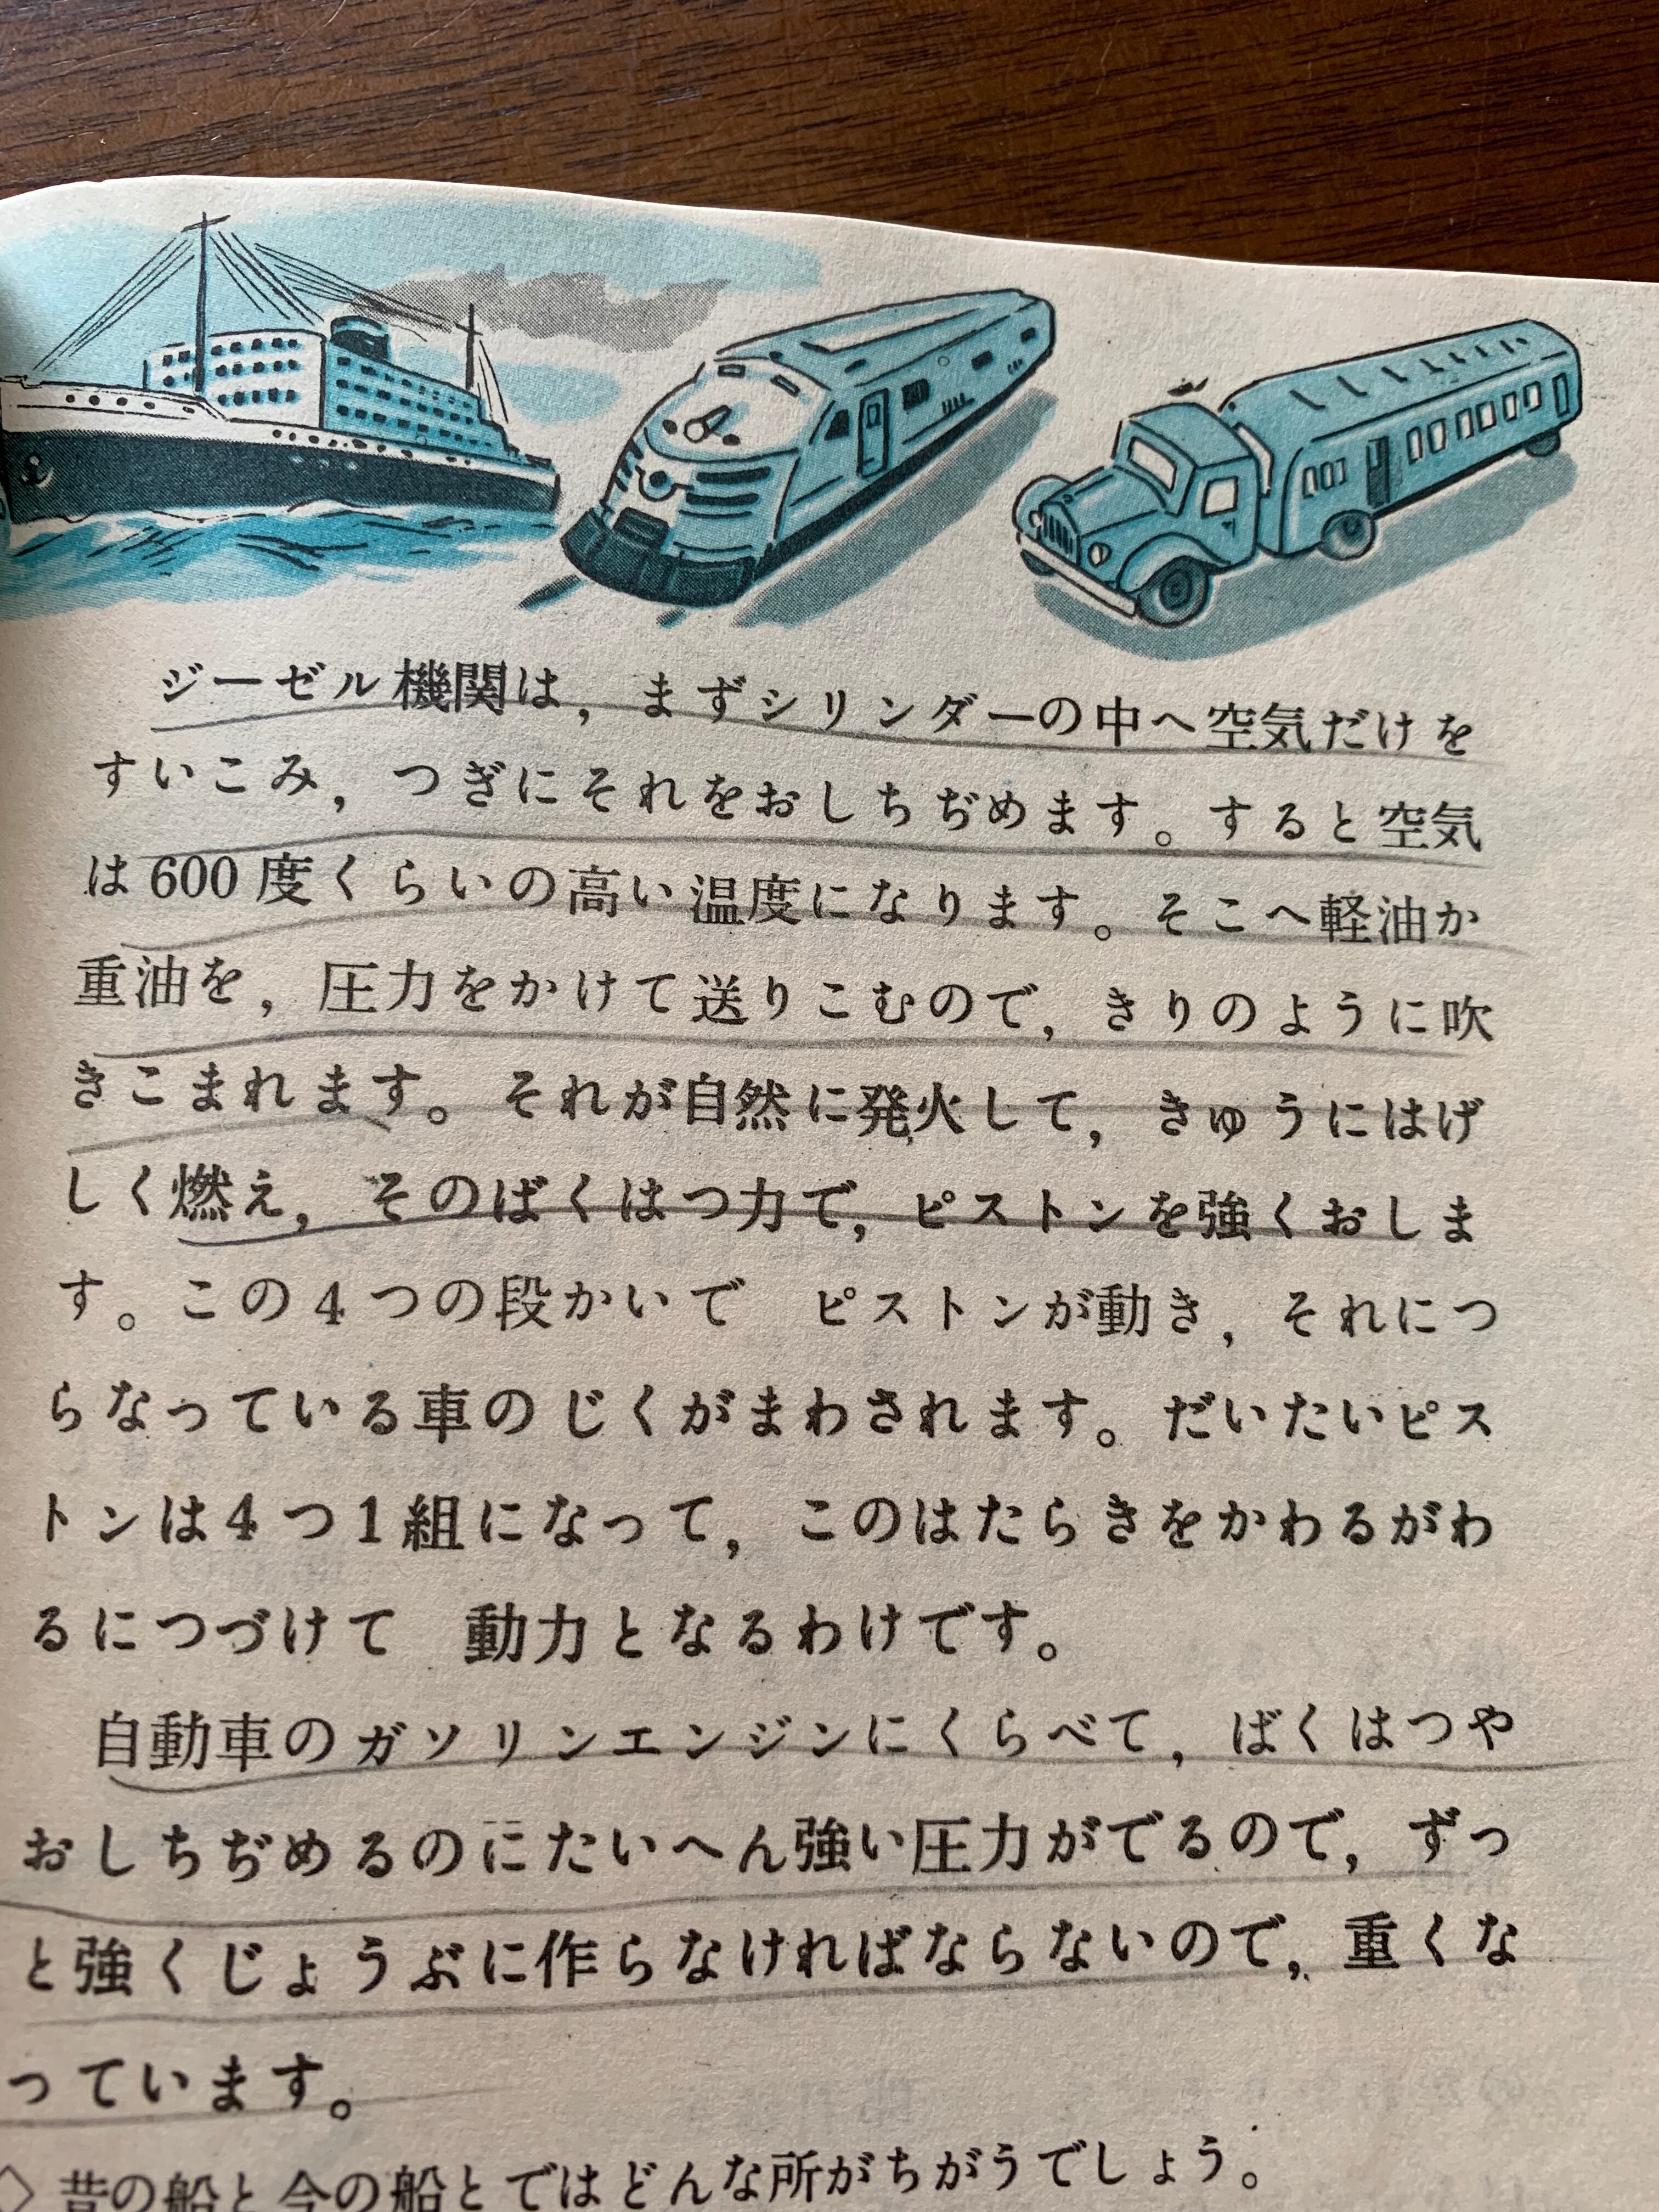 ジーゼル機関は，まずシリンダーの中へ空気だけを
すいこみ，つぎにそれをおしちぢめます。すると空気
は600度くらいの高い温度になります。そこへ軽油か
重油を，圧力をかけて送りこむので，きりのように吹
きこまれます。それが自然に発火して，きゅうにはげ
しく燃え，そのばくはつ力で，ピストンを強くおしま
す。この4つの段かいで　ピストンが動き，それにつ
らなっている車のじくがまわされます。だいたいピス
トンは4つ1組になって，このはたらきをかわるがわ
るにつづけて　動力となるわけです。
自動車のガソリンエンジンにくらべて，ばくはつや
おしちぢめるのにたいへん強い圧力がでるので，ずっ
と強くじょうぶに作らなければならないので，重くな
っています。
◇ 昔の船と今の船とではどんな所がちがうでしょう。